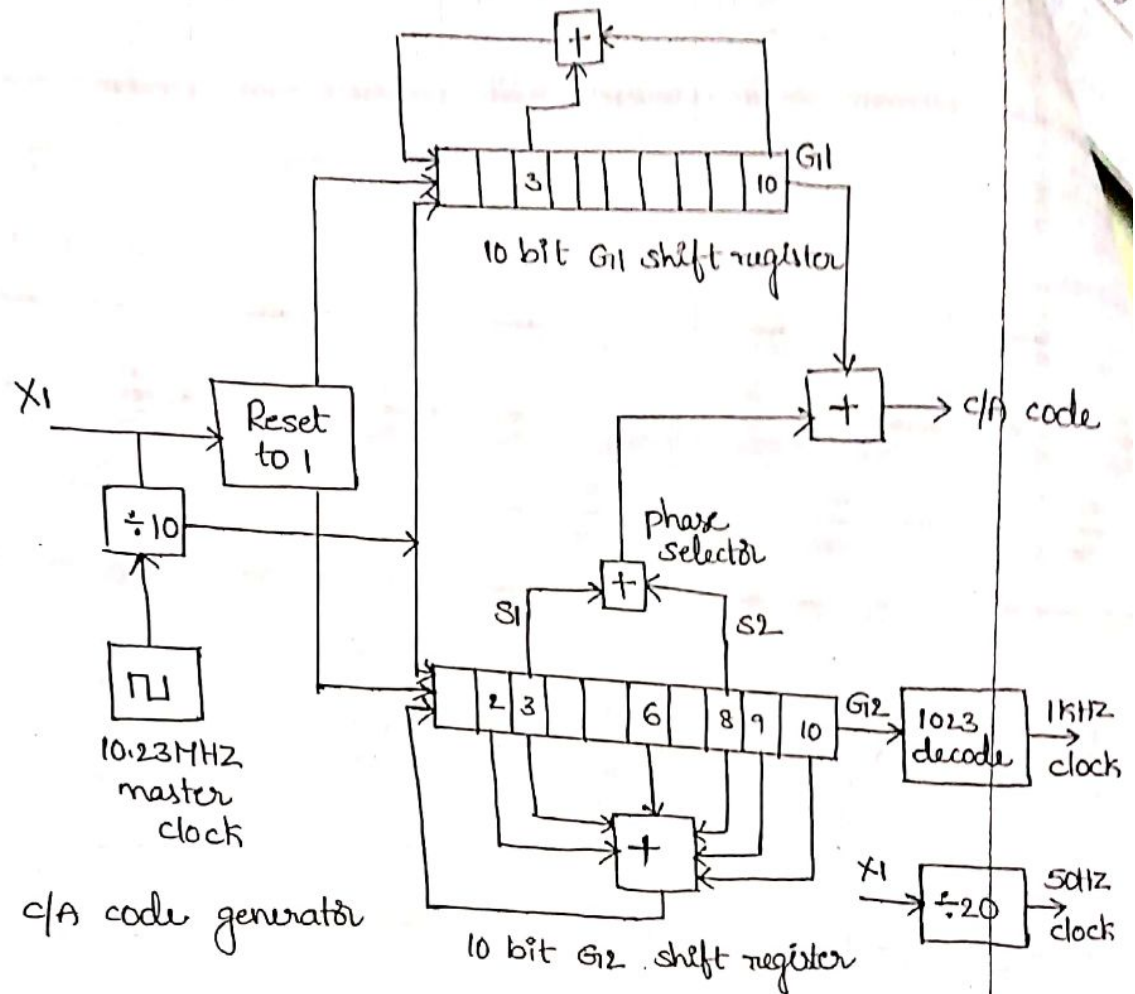 +
3
10
G1
10 bit G1 shift register
X1
Reset
to 1
+
C/A code
÷10
phase
selector
+
S1
S2
10.23MHZ
master
clock
2
3
6
8
9
10
G2
1023
decode
1KHZ
clock
+
X1
÷20
50HZ
clock
C/A code generator
10 bit G2 shift register